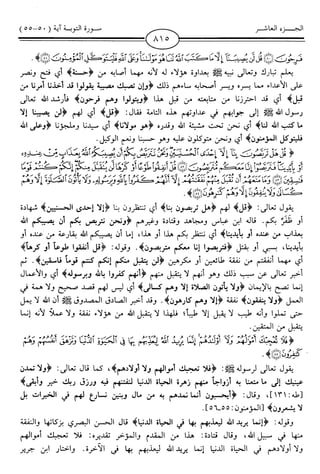 الجـزء العاشـر ٨١٥ سـورة التوبـة آية (٥٠-٥٥)
فَرِحُونَ ۝ قُل لَّن يُصِيبَنَا إِلَّا مَا كَتَبَ اللَّهُ لَنَا هُوَ مَوْلَانَا وَعَلَى اللَّهِ فَلْيَتَوَكَّلِ الْمُؤْمِنُونَ ۝﴾.
يعلم تبارك وتعالى نبيه ﷺ بعداوة هؤلاء له لأنه مهما أصابه من ﴿حسنة﴾ أي فتح ونصر
على الأعداء مما يسره ويسر أصحابه ساءهم ذلك ﴿وإن تصبك مصيبة يقولوا قد أخذنا أمرنا من
قبل﴾ أي قد احترزنا من متابعته من قبل هذا ﴿ويتولوا وهم فرحون﴾ فأرشد الله تعالى
رسول الله ﷺ إلى جوابهم في عداوتهم هذه التامة فقال: ﴿قل﴾ أي لهم ﴿لن يصيبنا إلا
ما كتب الله لنا﴾ أي نحن تحت مشيئة الله وقدره ﴿هو مولانا﴾ أي سيدنا وملجؤنا ﴿وعلى الله
فليتوكل المؤمنون﴾ أي ونحن متوكلون عليه وهو حسبنا ونعم الوكيل.
﴿قُلْ هَلْ تَرَبَّصُونَ بِنَا إِلَّا إِحْدَى الْحُسْنَيَيْنِ وَنَحْنُ نَتَرَبَّصُ بِكُمْ أَن يُصِيبَكُمُ اللَّهُ بِعَذَابٍ مِّنْ عِندِهِ أَوْ
بِأَيْدِينَا فَتَرَبَّصُوا إِنَّا مَعَكُم مُّتَرَبِّصُونَ ۝ قُلْ أَنفِقُوا طَوْعًا أَوْ كَرْهًا لَّن يُتَقَبَّلَ مِنكُمْ إِنَّكُمْ كُنتُمْ قَوْمًا
فَاسِقِينَ ۝ وَمَا مَنَعَهُمْ أَن تُقْبَلَ مِنْهُمْ نَفَقَاتُهُمْ إِلَّا أَنَّهُمْ كَفَرُوا بِاللَّهِ وَبِرَسُولِهِ وَلَا يَأْتُونَ الصَّلَاةَ إِلَّا وَهُمْ
كُسَالَىٰ وَلَا يُنفِقُونَ إِلَّا وَهُمْ كَارِهُونَ ۝﴾.
يقول تعالى: ﴿قل﴾ لهم ﴿هل تربصون بنا﴾ أي تنتظرون بنا ﴿إلا إحدى الحسنيين﴾ شهادة
أو ظفر بكم. قاله ابن عباس ومجاهد وقتادة وغيرهم ﴿ونحن نتربص بكم أن يصيبكم الله
بعذاب من عنده أو بأيدينا﴾ أي ننتظر بكم هذا أو هذا، إما أن يصيبكم الله بقارعة من عنده أو
بأيدينا، بسبي أو بقتل ﴿فتربصوا إنا معكم متربصون﴾. وقوله: ﴿قل أنفقوا طوعاً أو كرهاً﴾
أي مهما أنفقتم من نفقة طائعين أو مكرهين ﴿لن يتقبل منكم إنكم كنتم قوماً فاسقين﴾. ثم
أخبر تعالى عن سبب ذلك وهو أنهم لا يتقبل منهم ﴿أنهم كفروا بالله وبرسوله﴾ أي والأعمال
إنما تصح بالإيمان ﴿ولا يأتون الصلاة إلا وهم كسالى﴾ أي ليس لهم قصد صحيح ولا همة في
العمل ﴿ولا ينفقون﴾ نفقة ﴿إلا وهم كارهون﴾. وقد أخبر الصادق المصدوق ﷺ أن الله لا يمل
حتى تملوا وأنه طيب لا يقبل إلا طيباً؛ فلهذا لا يتقبل الله من هؤلاء نفقة ولا عملاً لأنه إنما
يتقبل من المتقين.
﴿فَلَا تُعْجِبْكَ أَمْوَالُهُمْ وَلَا أَوْلَادُهُمْ إِنَّمَا يُرِيدُ اللَّهُ لِيُعَذِّبَهُم بِهَا فِي الْحَيَاةِ الدُّنْيَا وَتَزْهَقَ أَنفُسُهُمْ وَهُمْ
كَافِرُونَ ۝﴾.
يقول تعالى لرسوله ﷺ: ﴿فلا تعجبك أموالهم ولا أولادهم﴾، كما قال تعالى: ﴿ولا تمدن
عينيك إلى ما متعنا به أزواجاً منهم زهرة الحياة الدنيا لنفتنهم فيه ورزق ربك خير وأبقى﴾
[طه: ١٣١]، وقال: ﴿أيحسبون أنما نمدهم به من مال وبنين نسارع لهم في الخيرات بل
لا يشعرون﴾ [المؤمنون: ٥٥-٥٦].
وقوله: ﴿إنما يريد الله ليعذبهم بها في الحياة الدنيا﴾ قال الحسن البصري بزكاتها والنفقة
منها في سبيل الله، وقال قتادة: هذا من المقدم والمؤخر تقديره: فلا تعجبك أموالهم
ولا أولادهم في الحياة الدنيا إنما يريد الله ليعذبهم بها في الآخرة. واختار ابن جرير